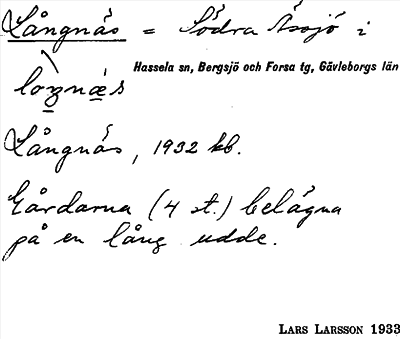 Långnäs = Södra Åsjö i
Hassela sn, Bergsjö och Forsa tg, Gävleborgs län
Långnäs, 1932 kb.
Gårdarna (4 st.) belägna
på en lång udde.
LARS LARSSON 1933